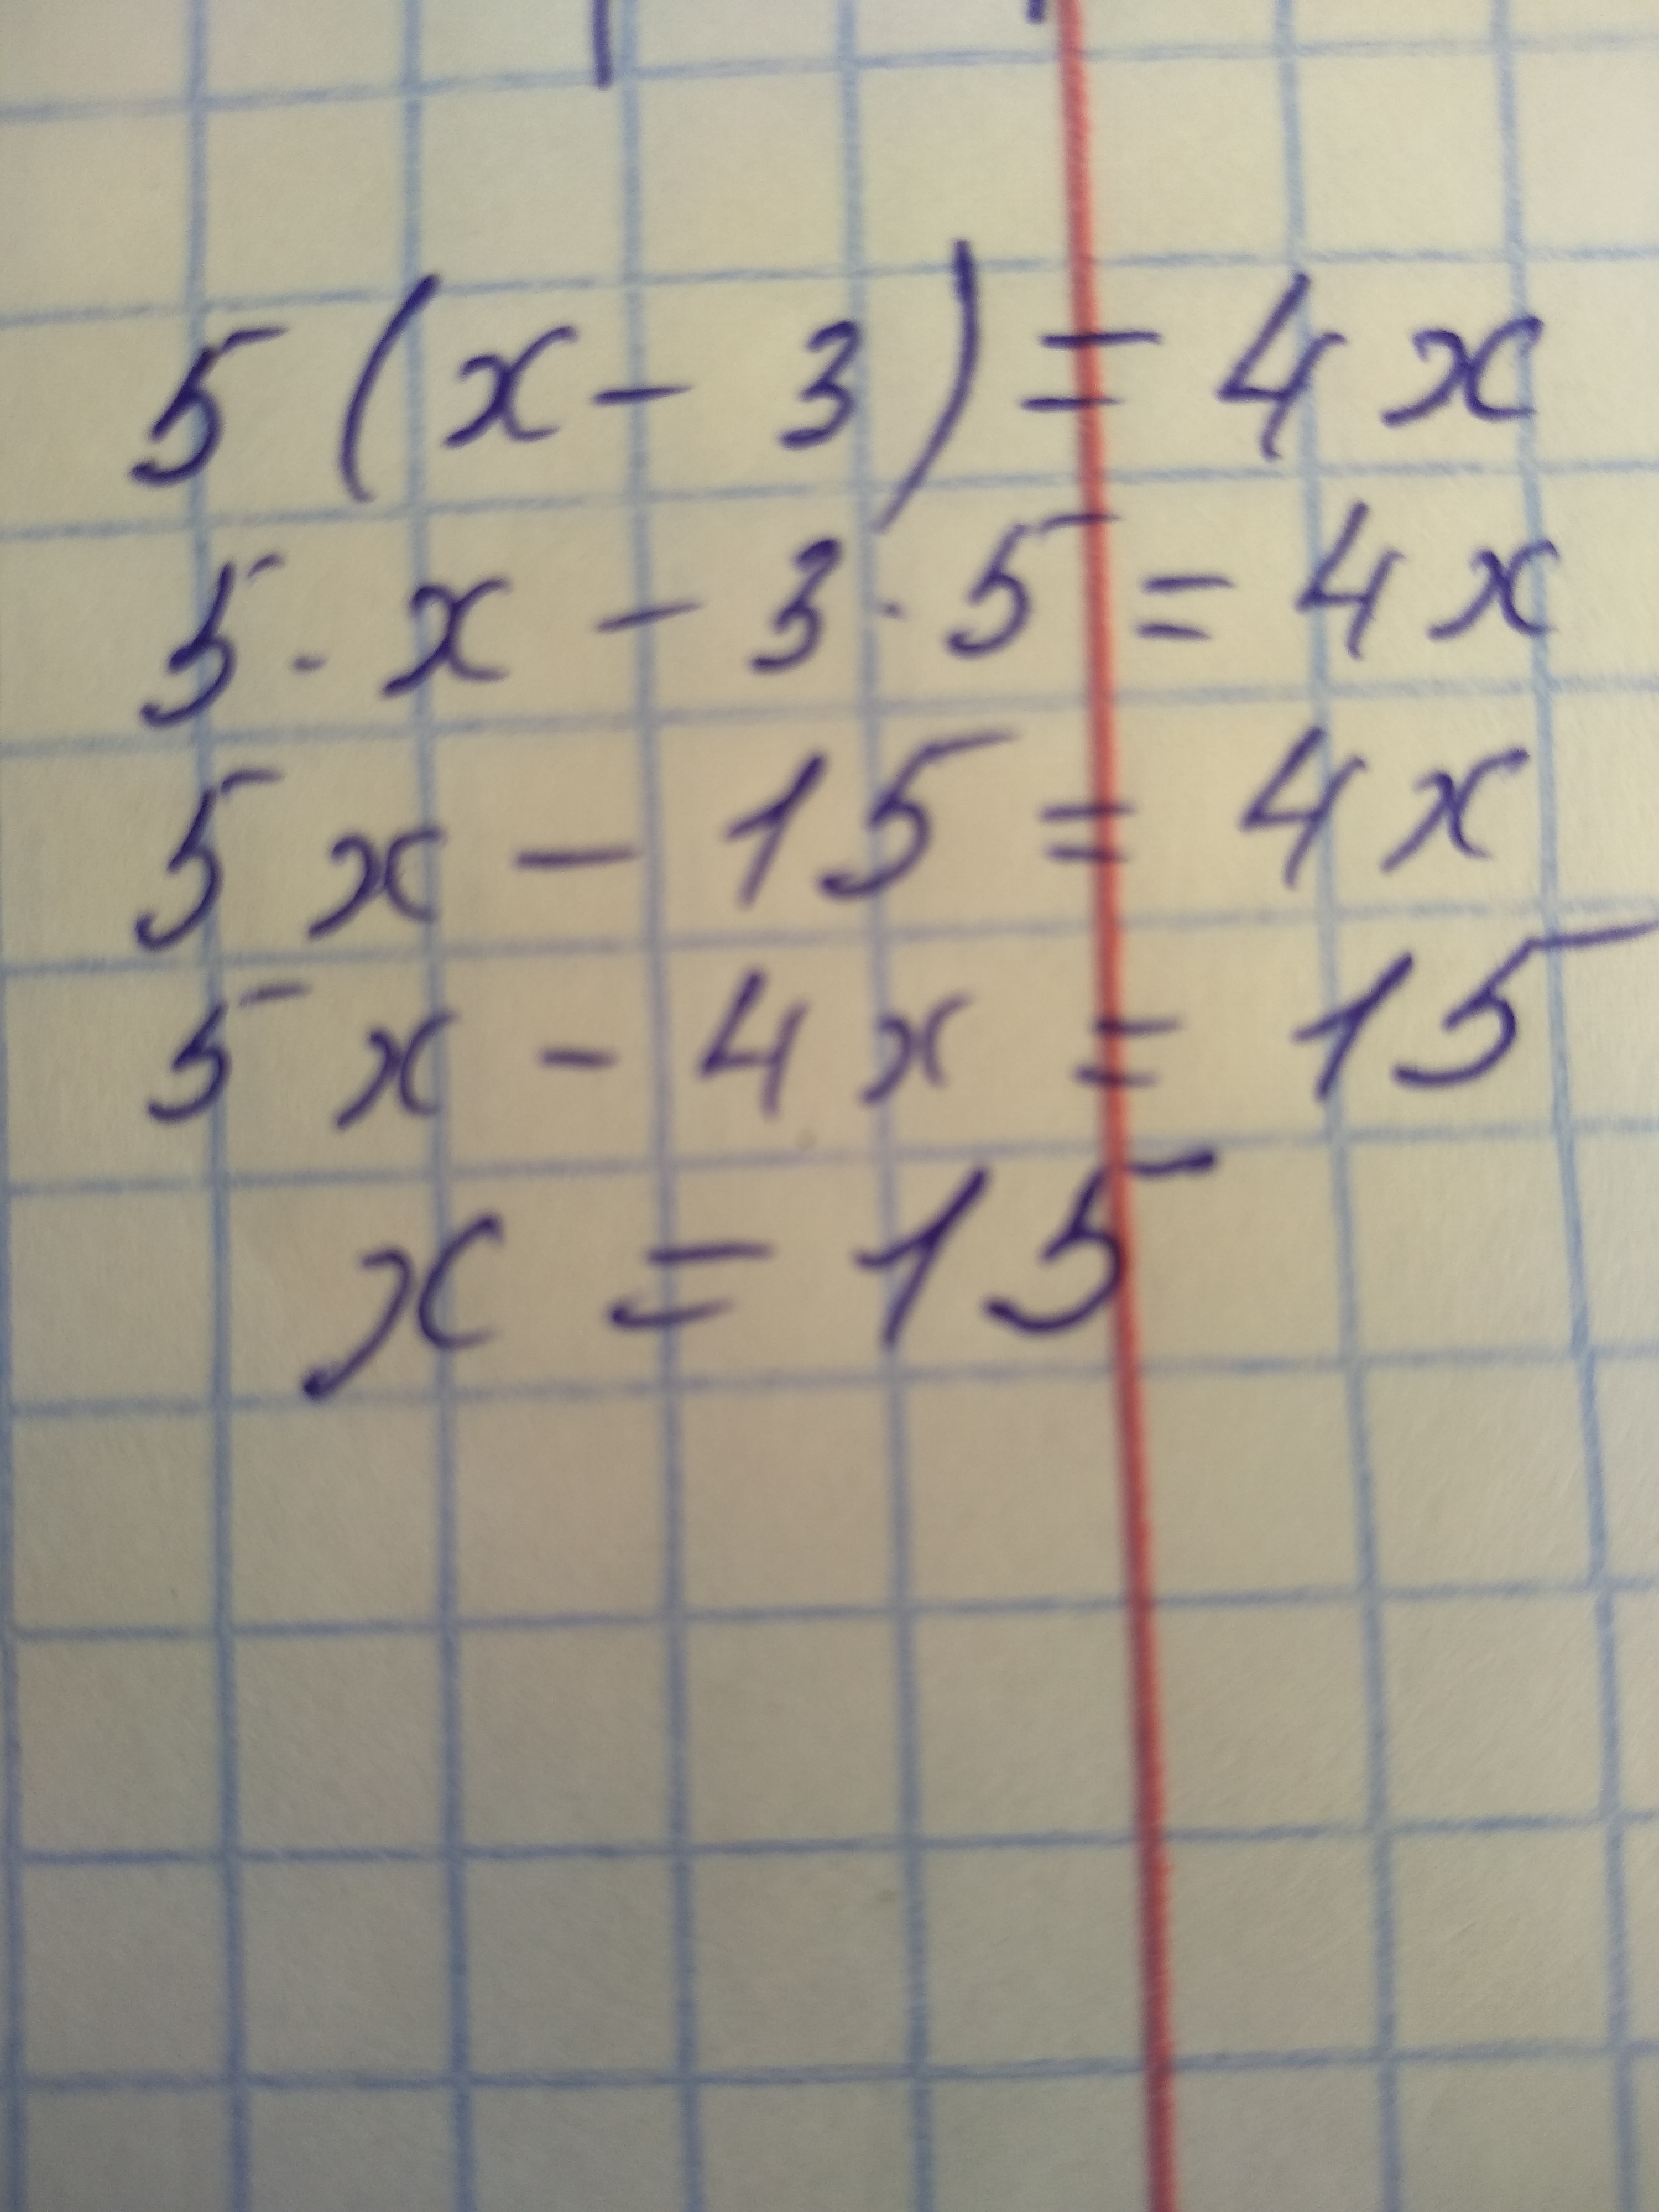 5(x - 3) = 4x
5 · x - 3 · 5 = 4x
5x - 15 = 4x
5x - 4x = 15
x = 15